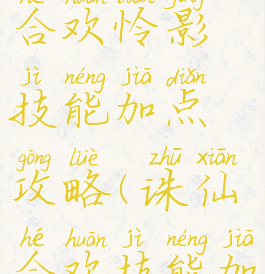 hé huān lián yǐng
合欢怜影
jì néng jiā diǎn
技能加点
gōng lüè zhū xiān
攻略(诛仙
hé huān jì néng jiā
合欢技能加